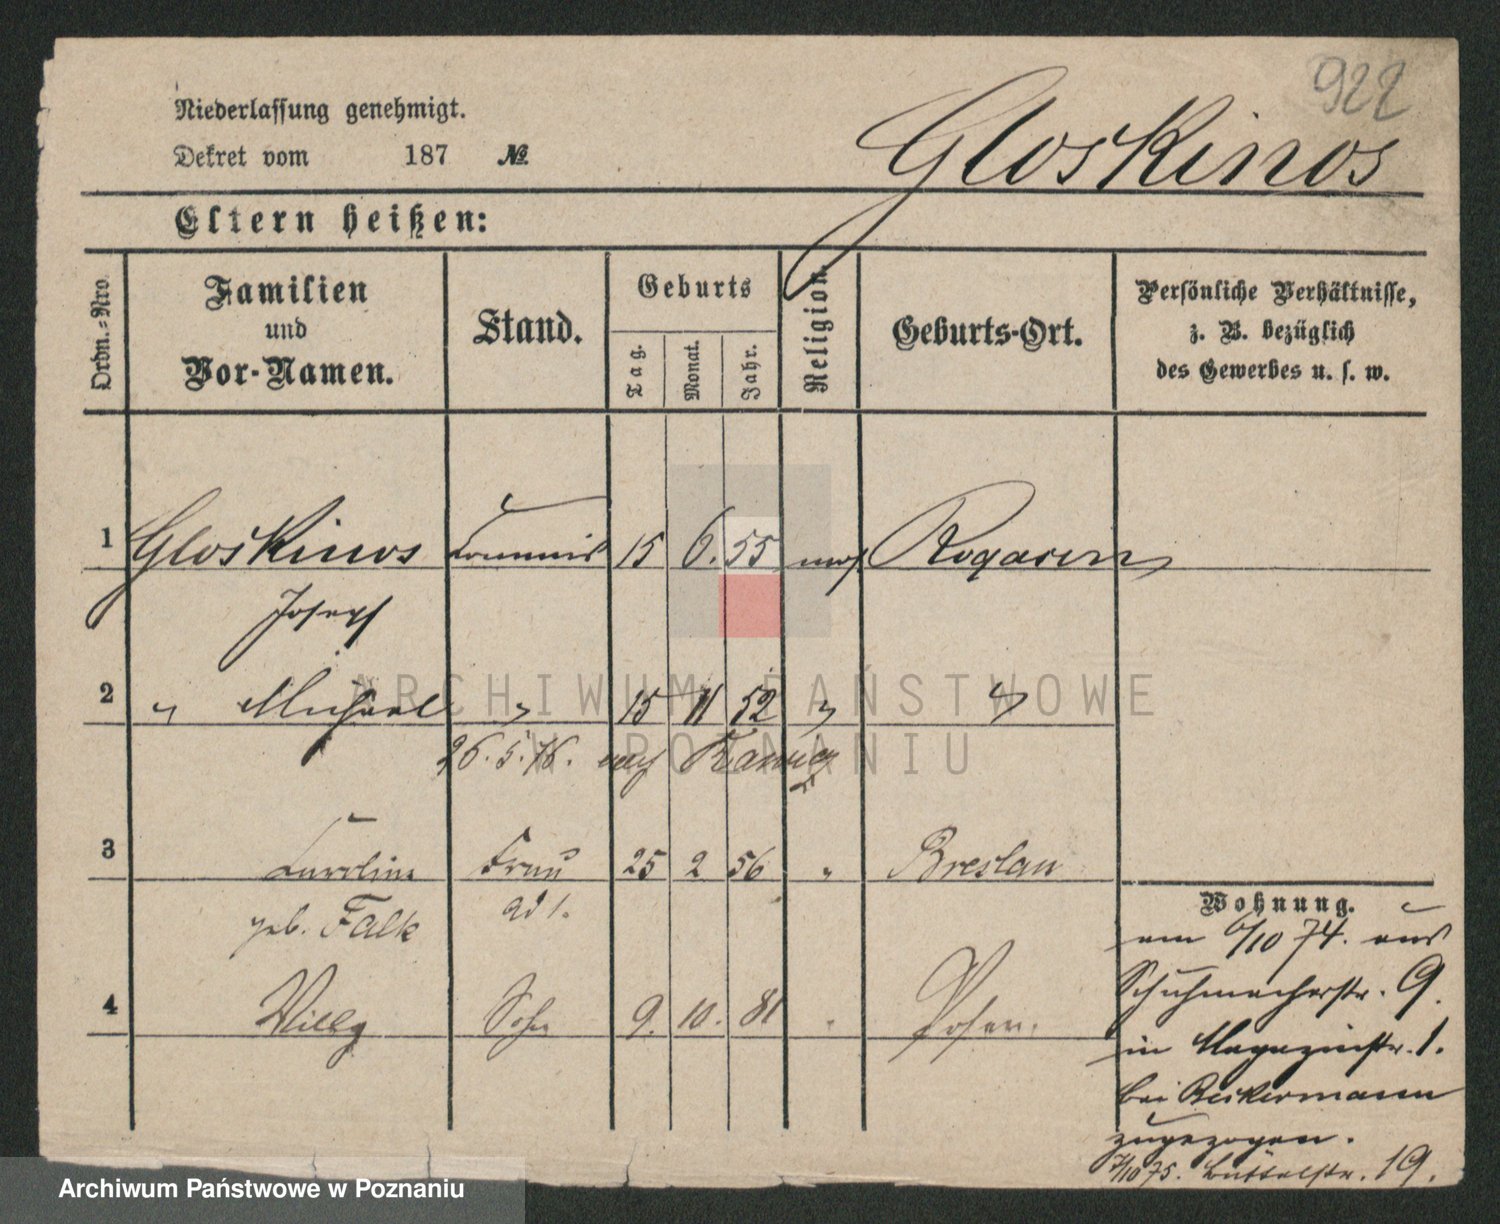 922
Niederlassung genehmigt.
Gloskinos
Dekret vom 187 №
Eltern heißen:
Ordn.-Nro.
Familien
und
Vor-Namen.
Stand.
Geburts
Tag.
Monat.
Jahr.
Religion
Geburts-Ort.
Persönliche Verhältnisse,
z. B. bezüglich
des Gewerbes u. s. w.
1 Gloskinos Commis 15 6. 55 mos. Rogasen
Joseph
2 " Michael " 15 11 52 " "
26.5.76. nach
3 Caroline Frau 25 2 56 " Breslau
geb. Falk ad 1.
4 Willy Sohn 9. 10. 81 " Posen.
Wohnung.
am 6/10 74. aus
Schuhmacherstr. 9.
in Magazinstr. 1.
bei Beckermann
zugezogen.
7/10 75. Büttelstr. 19.
ARCHIWUM PAŃSTWOWE
W POZNANIU
Archiwum Państwowe w Poznaniu